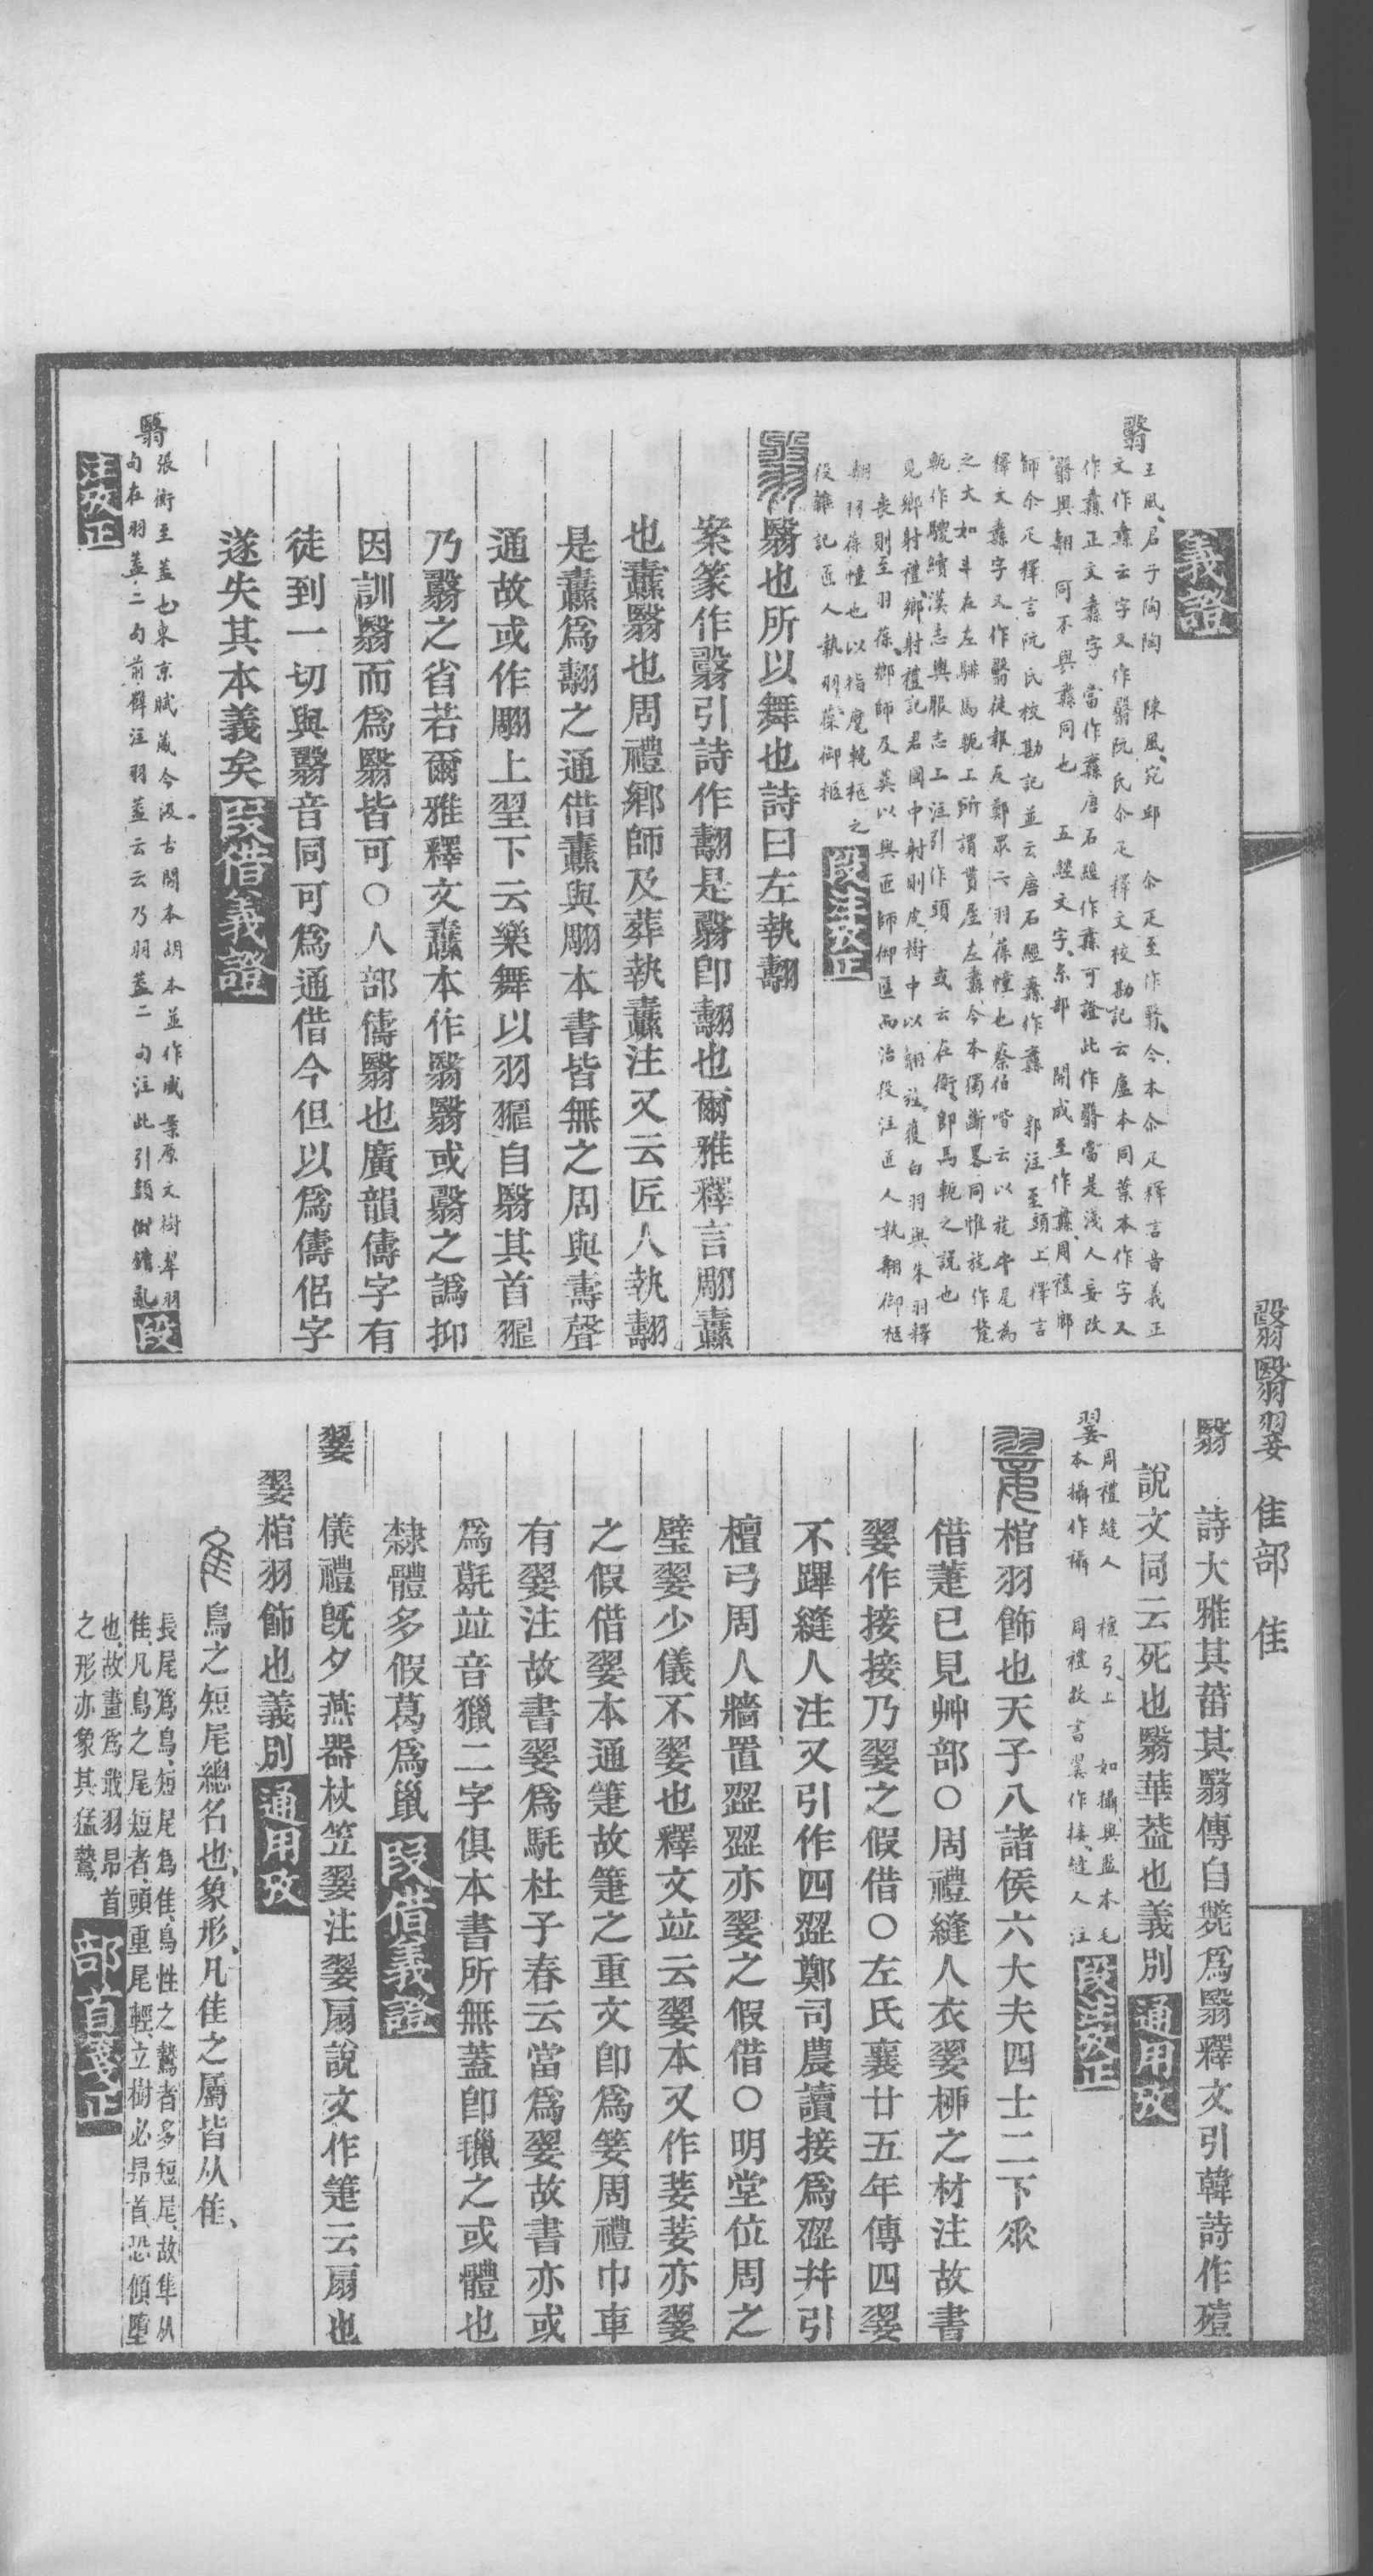 義證
翳
王風、君子陶陶　陳風、宛邱　尒疋至作翳、今本尒疋釋言音義正
文作纛云字又作翳阮氏尒疋釋文校勘記云盧本同葉本作字又
作纛正文纛字當作纛唐石經作纛可證此作翳當是淺人妄改
翳與翿同不與纛同也　五經文字、糸部　開成至作纛、周禮鄉
師尒疋釋言阮氏校勘記並云唐石經纛作纛　郭注至頭上釋言
釋文纛字又作翳徒報反鄭眾云羽葆幢也蔡伯喈云以旄牛尾為
之大如斗在左騑馬軛上所謂黃屋左纛、今本獨斷畧同惟旄作氂
軛作騣續漢志輿服志上注引作頭　或云在衡、即馬軛之說也
見鄉射禮、鄉射禮記君國中射則皮樹中以翿旌獲白羽與朱羽糅
喪則至羽葆、鄉師及葬以與匠師御匶而治役注匠人執翿御柩
翿羽葆幢也以指麾輓柩之
役雜記匠人執羽葆御柩
段注攷正
翳也所以舞也詩曰左執翿
案篆作翳引詩作翿是翳卽翿也爾雅釋言翢纛
也纛翳也周禮鄉師及葬執纛注又云匠人執翿
是纛爲翿之通借纛與翢本書皆無之周與壽聲
通故或作翢上翌下云樂舞以羽䍿自翳其首䍿
乃翳之省若爾雅釋文纛本作翳翳或翳之譌抑
因訓翳而爲翳皆可○人部儔翳也廣韻儔字有
徒到一切與翳音同可爲通借今但以爲儔侶字
遂失其本義矣
段借義證
翳
張衡至蓋也東京賦葴今汲古閣本胡本並作咸葉原文樹翠羽
句在羽蓋二句前薛注羽蓋云云乃羽蓋二句注此引顛倒錯亂
段注攷正
翳翳翣　隹部　隹
翳　詩大雅其菑其翳傳自斃爲翳釋文引韓詩作殪
說文同云死也翳華葢也義別
通用攷
翣
周禮縫人　檀弓、上　如攝、與監本毛
本攝作襵　周禮故書翣作接、縫人注
段注攷正
棺羽飾也天子八諸侯六大夫四士二下𠂹
借萐已見艸部○周禮縫人衣翣桺之材注故書
翣作接接乃翣之假借○左氏襄廿五年傳四翣
不蹕縫人注又引作四歰鄭司農讀接爲歰幷引
檀弓周人牆置歰歰亦翣之假借○明堂位周之
璧翣少儀不翣也釋文竝云翣本又作菨菨亦翣
之假借翣本通箑故箑之重文卽爲篓周禮巾車
有翣注故書翣爲毦杜子春云當爲翣故書亦或
爲㲱竝音獵二字俱本書所無蓋卽㼃之或體也
隸體多假葛爲巤
段借義證
翣　儀禮旣夕燕器杖笠翣注翣扇說文作箑云扇也
翣棺羽飾也義別
通用攷
鳥之短尾總名也、象形、凡隹之屬皆从隹、
長尾爲鳥、短尾爲隹、鳥性之鷙者多短尾、故隼从
隹、凡鳥之尾短者、頭重尾輕、立樹必昂首、恐傾墮
也、故畫爲戢羽昂首
之形亦象其猛鷙、
部首箋正